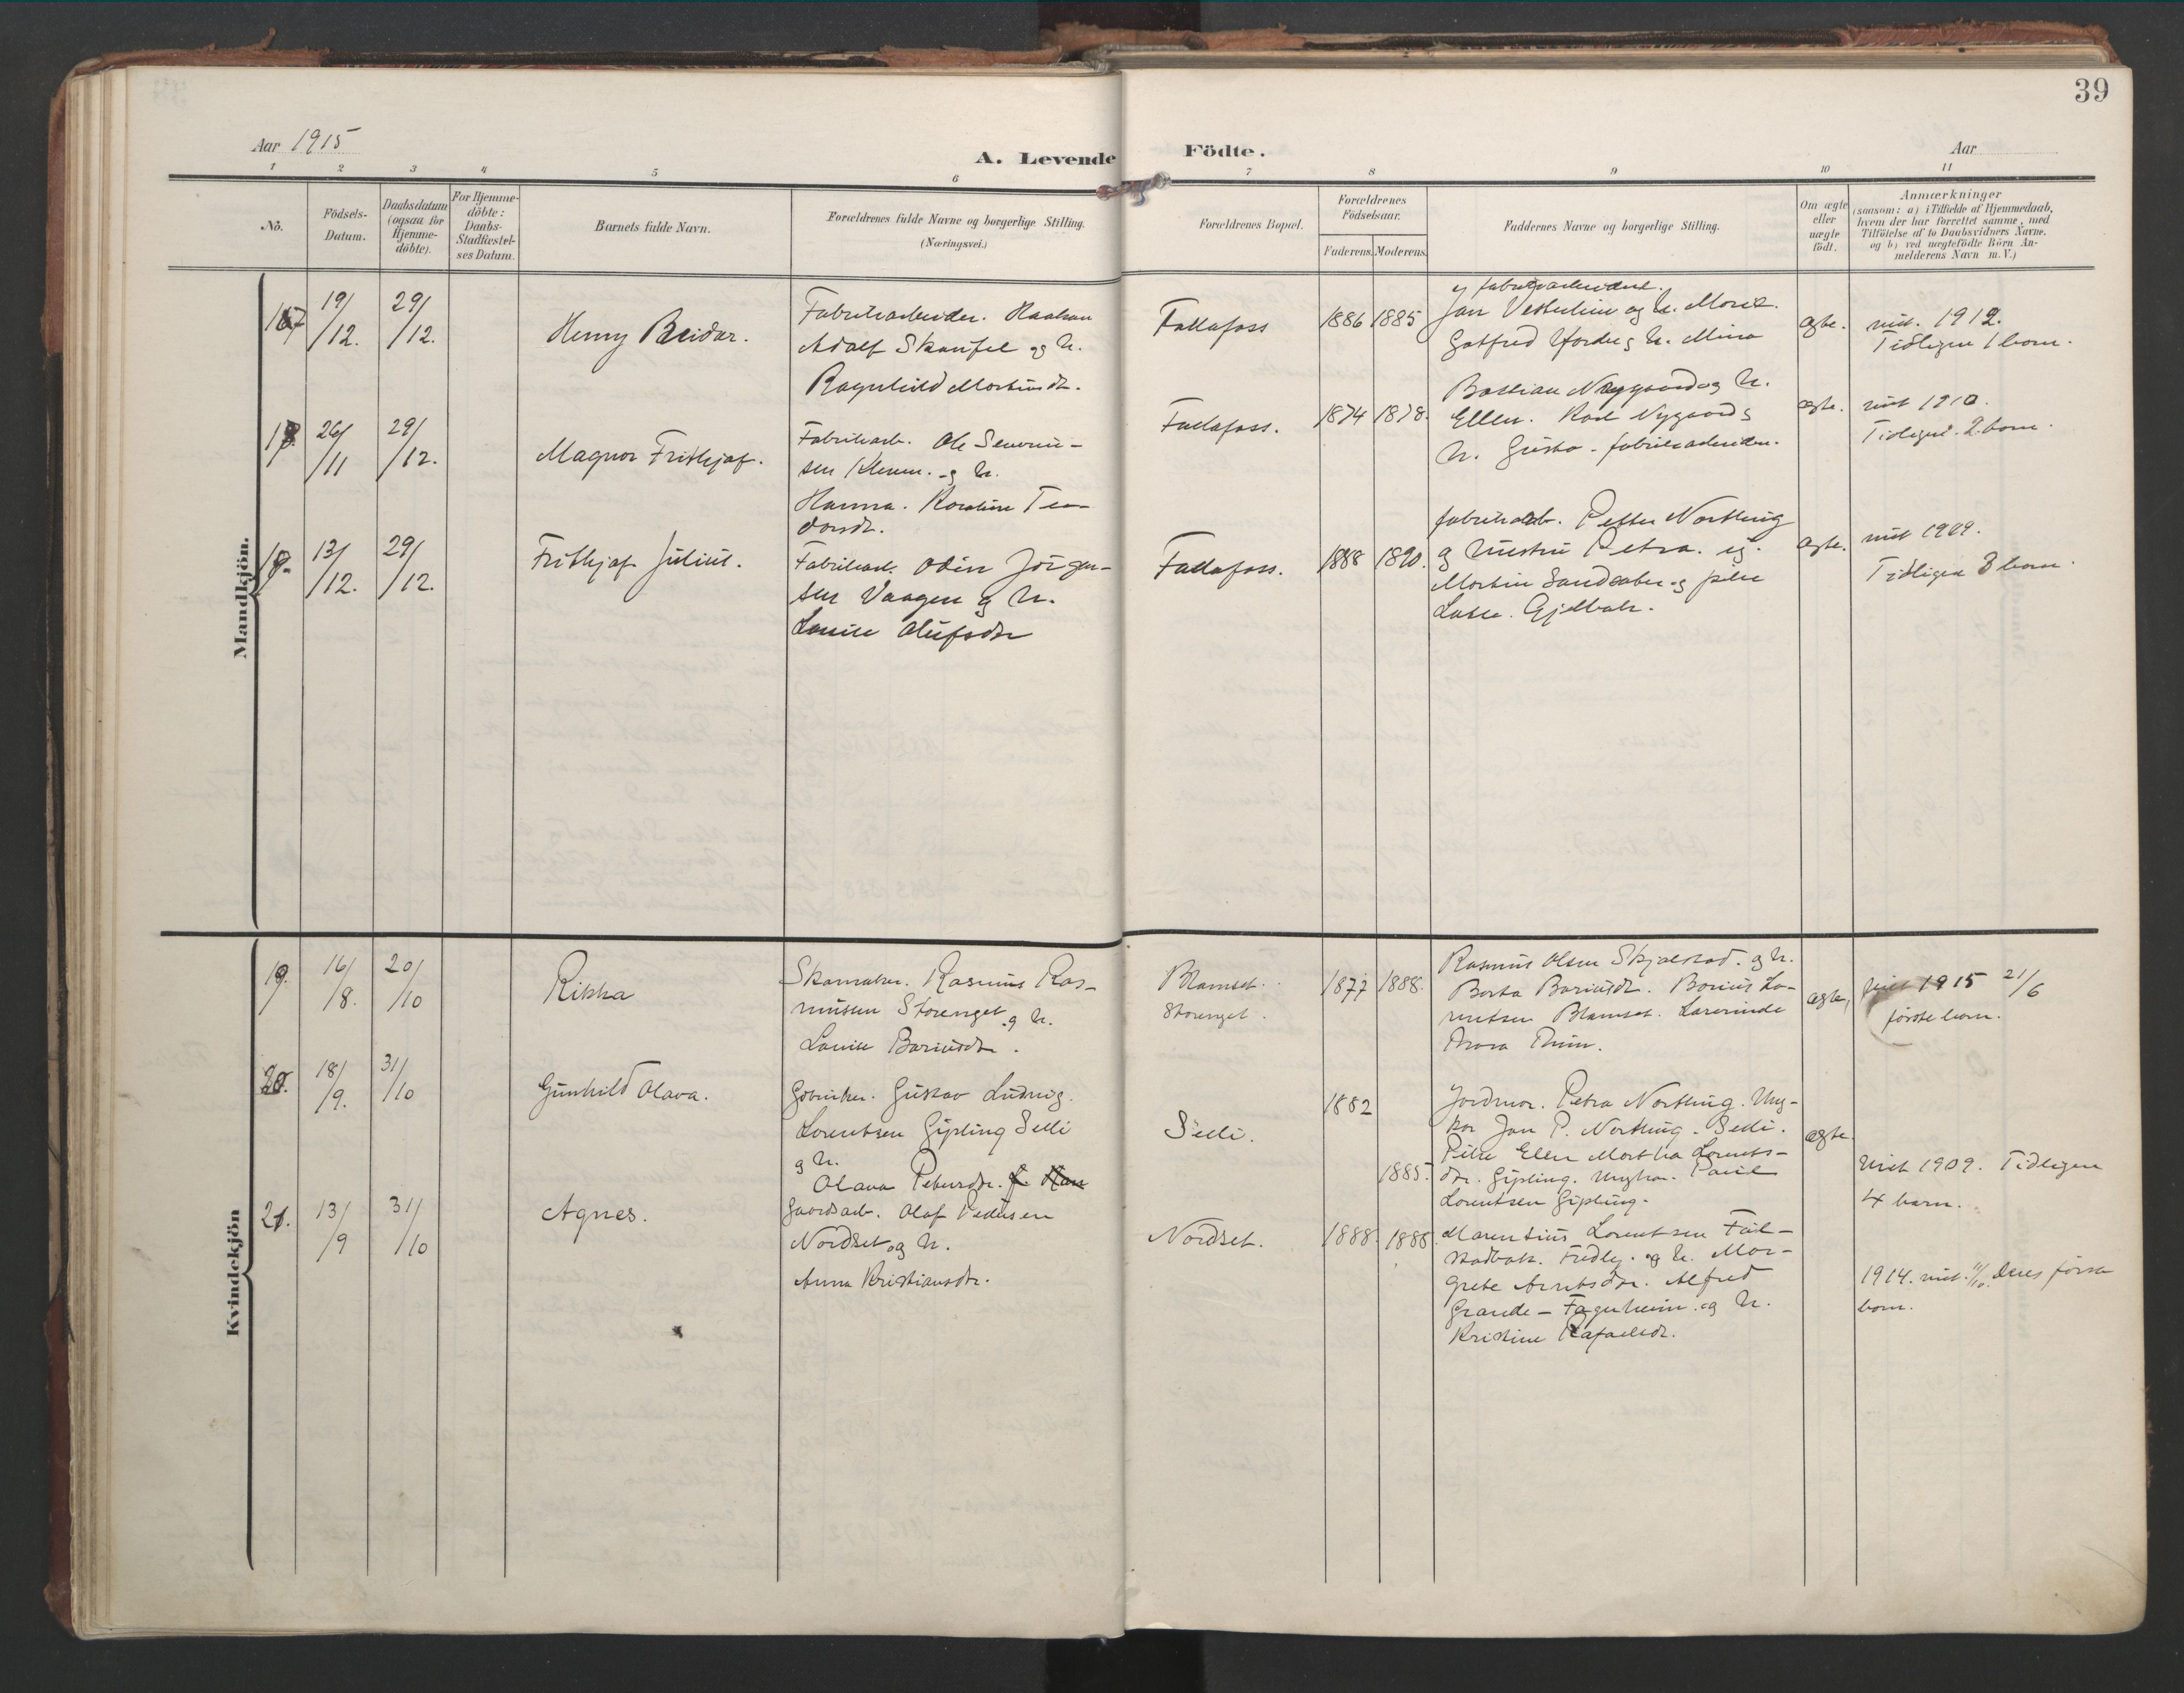 39
Aar 1915
A. Levende Födte.
Aar
1 2 3 4 5 6 7 8 9 10 11
Nö.
Födsels-
Datum.
Daabsdatum
(ogsaa for
Hjemme-
döbte).
For Hjemme-
döbte:
Daabs-
Stadfæstel-
ses Datum.
Barnets fulde Navn.
Forældrenes fulde Navne og borgerlige Stilling.
(Næringsvei.)
Forældrenes Bopæl.
Forældrenes
Födselsaar.
Faderens. Moderens.
Faddernes Navne og borgerlige Stilling.
Om ægte
eller
uægte
födt.
Anmærkninger
(saasom: a) i Tilfælde af Hjemmedaab,
hvem der har forrettet samme, med
Tilföielse af to Daabsvidners Navne,
og b) ved uægtefödte Börn An-
melderens Navn m.V.)
Mandkjön.
19/12.
29/12.
Henny Reidar.
Fabrikarbeider. Haakon
Adolf Skaufel og h.
Ragnhild Martinsdt.
Follafoss
1886 1885
Gotfred Hjorde og h. Mina
ægte.
viet. 1912.
Tidligere 1 barn.
26/11
29/12.
Magnor Frithjof.
Fabrikarb. Ole Severin-
sen Klevem. og h.
Hanna. Karoline Teo-
dorsdt.
Follafoss.
1874 1878.
Bastian Nygaard og h.
Ellen. Karl Nygaard og
h. Gusta - fabrikarbeider.
ægte.
viet 1910.
Tidligere. 2. barn.
13/12.
29/12.
Frithjof Julius.
Fabrikarb. Odin Jörgen-
sen Vaagen og h.
Louise Olufsdtr
Follafoss.
1888 1890.
fabrikarb. Petter Nortling
og hustru Petra. og
Martin Sandsaker og pike
Lasse. Gjelbak.
ægte.
viet 1909.
Tidligere 3 barn.
Kvindekjön
19.
16/8.
20/10
Rikka
Skomaker. Rasmus Ras-
mussen Storenget og h.
Louise Bariusdtr.
Blamset.
Storenget.
1877 1888.
Rasmus Olsen Skjelstad. og h.
Berta Bariusdt. Barius Lo-
rentsen Blamset. Lærerinde
ægte,
viet 1915 21/6
förste barn.
20.
18/9.
31/10
Gunhild Olava.
Gbruker. Gustav Ludvig.
Lorentsen Gipling Selli
og h.
Olava Petersdtr.
Selli.
1882
1885.
Jordmor. Petra Nortling. Ung-
kar Jon P. Nortling - Selli.
Pike Ellen Martha Lorents-
dtr. Gipling. Ungkar. Paul
Lorentsen Gipling.
ægte.
Viet 1909. Tidligere
4 barn.
21.
13/9
31/10
Agnes.
Gaardsarb. Olaf Pedersen
Nordset og h.
Anna Kristiansdtr.
Nordset.
1888. 1888.
Marentius Lorentsen Ful-
stadvak. Fredly. og h. Mar-
grete Arntsdtr. Alfred
Grande - Fagerheim. og h.
Kristine Rafaelsdt.
1914. viet. 11/10. Deres förste
barn.